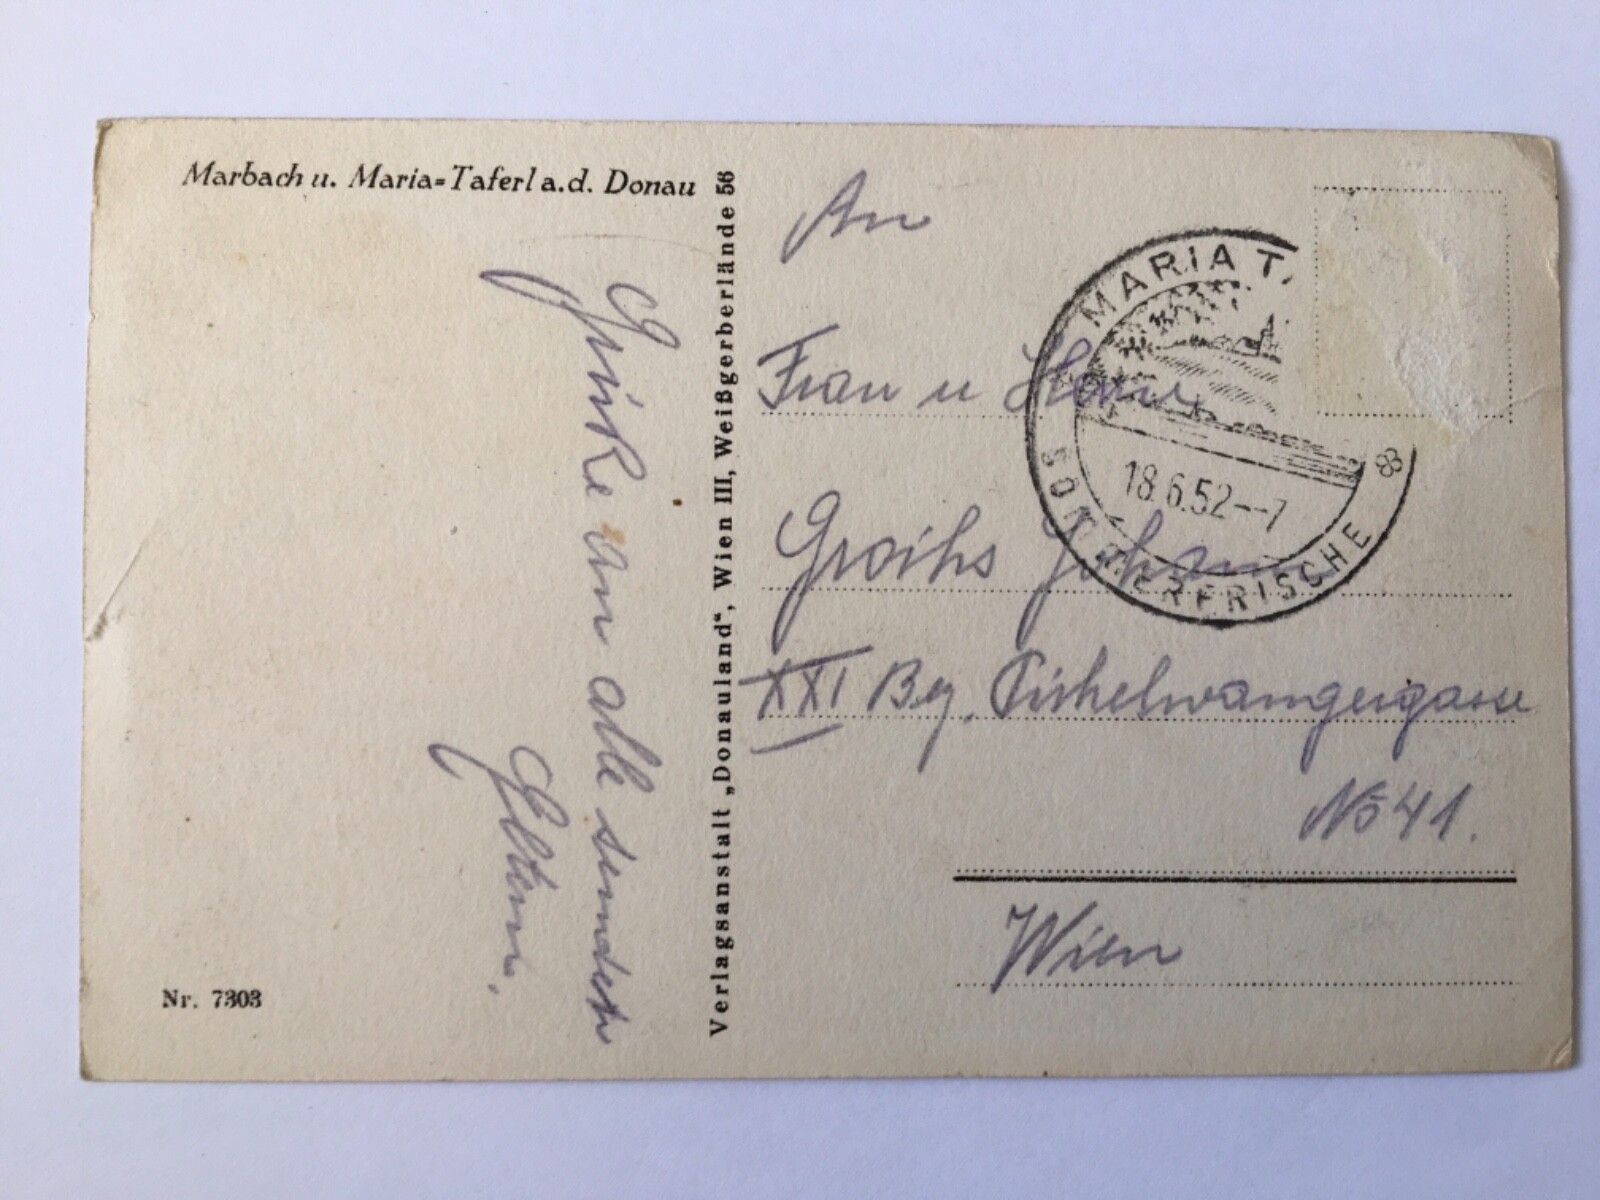 Marbach u. Maria=Taferl a.d. Donau
Grüße an alle sendet
Eltern.
Nr. 7303
Verlagsanstalt „Donauland“, Wien III, Weißgerberlände 56
An
Frau u Herr
Groihs Johann
XXI Bez.
No 41.
Wien
MARIA TA
18.6.52--7
SOMMERFRISCHE